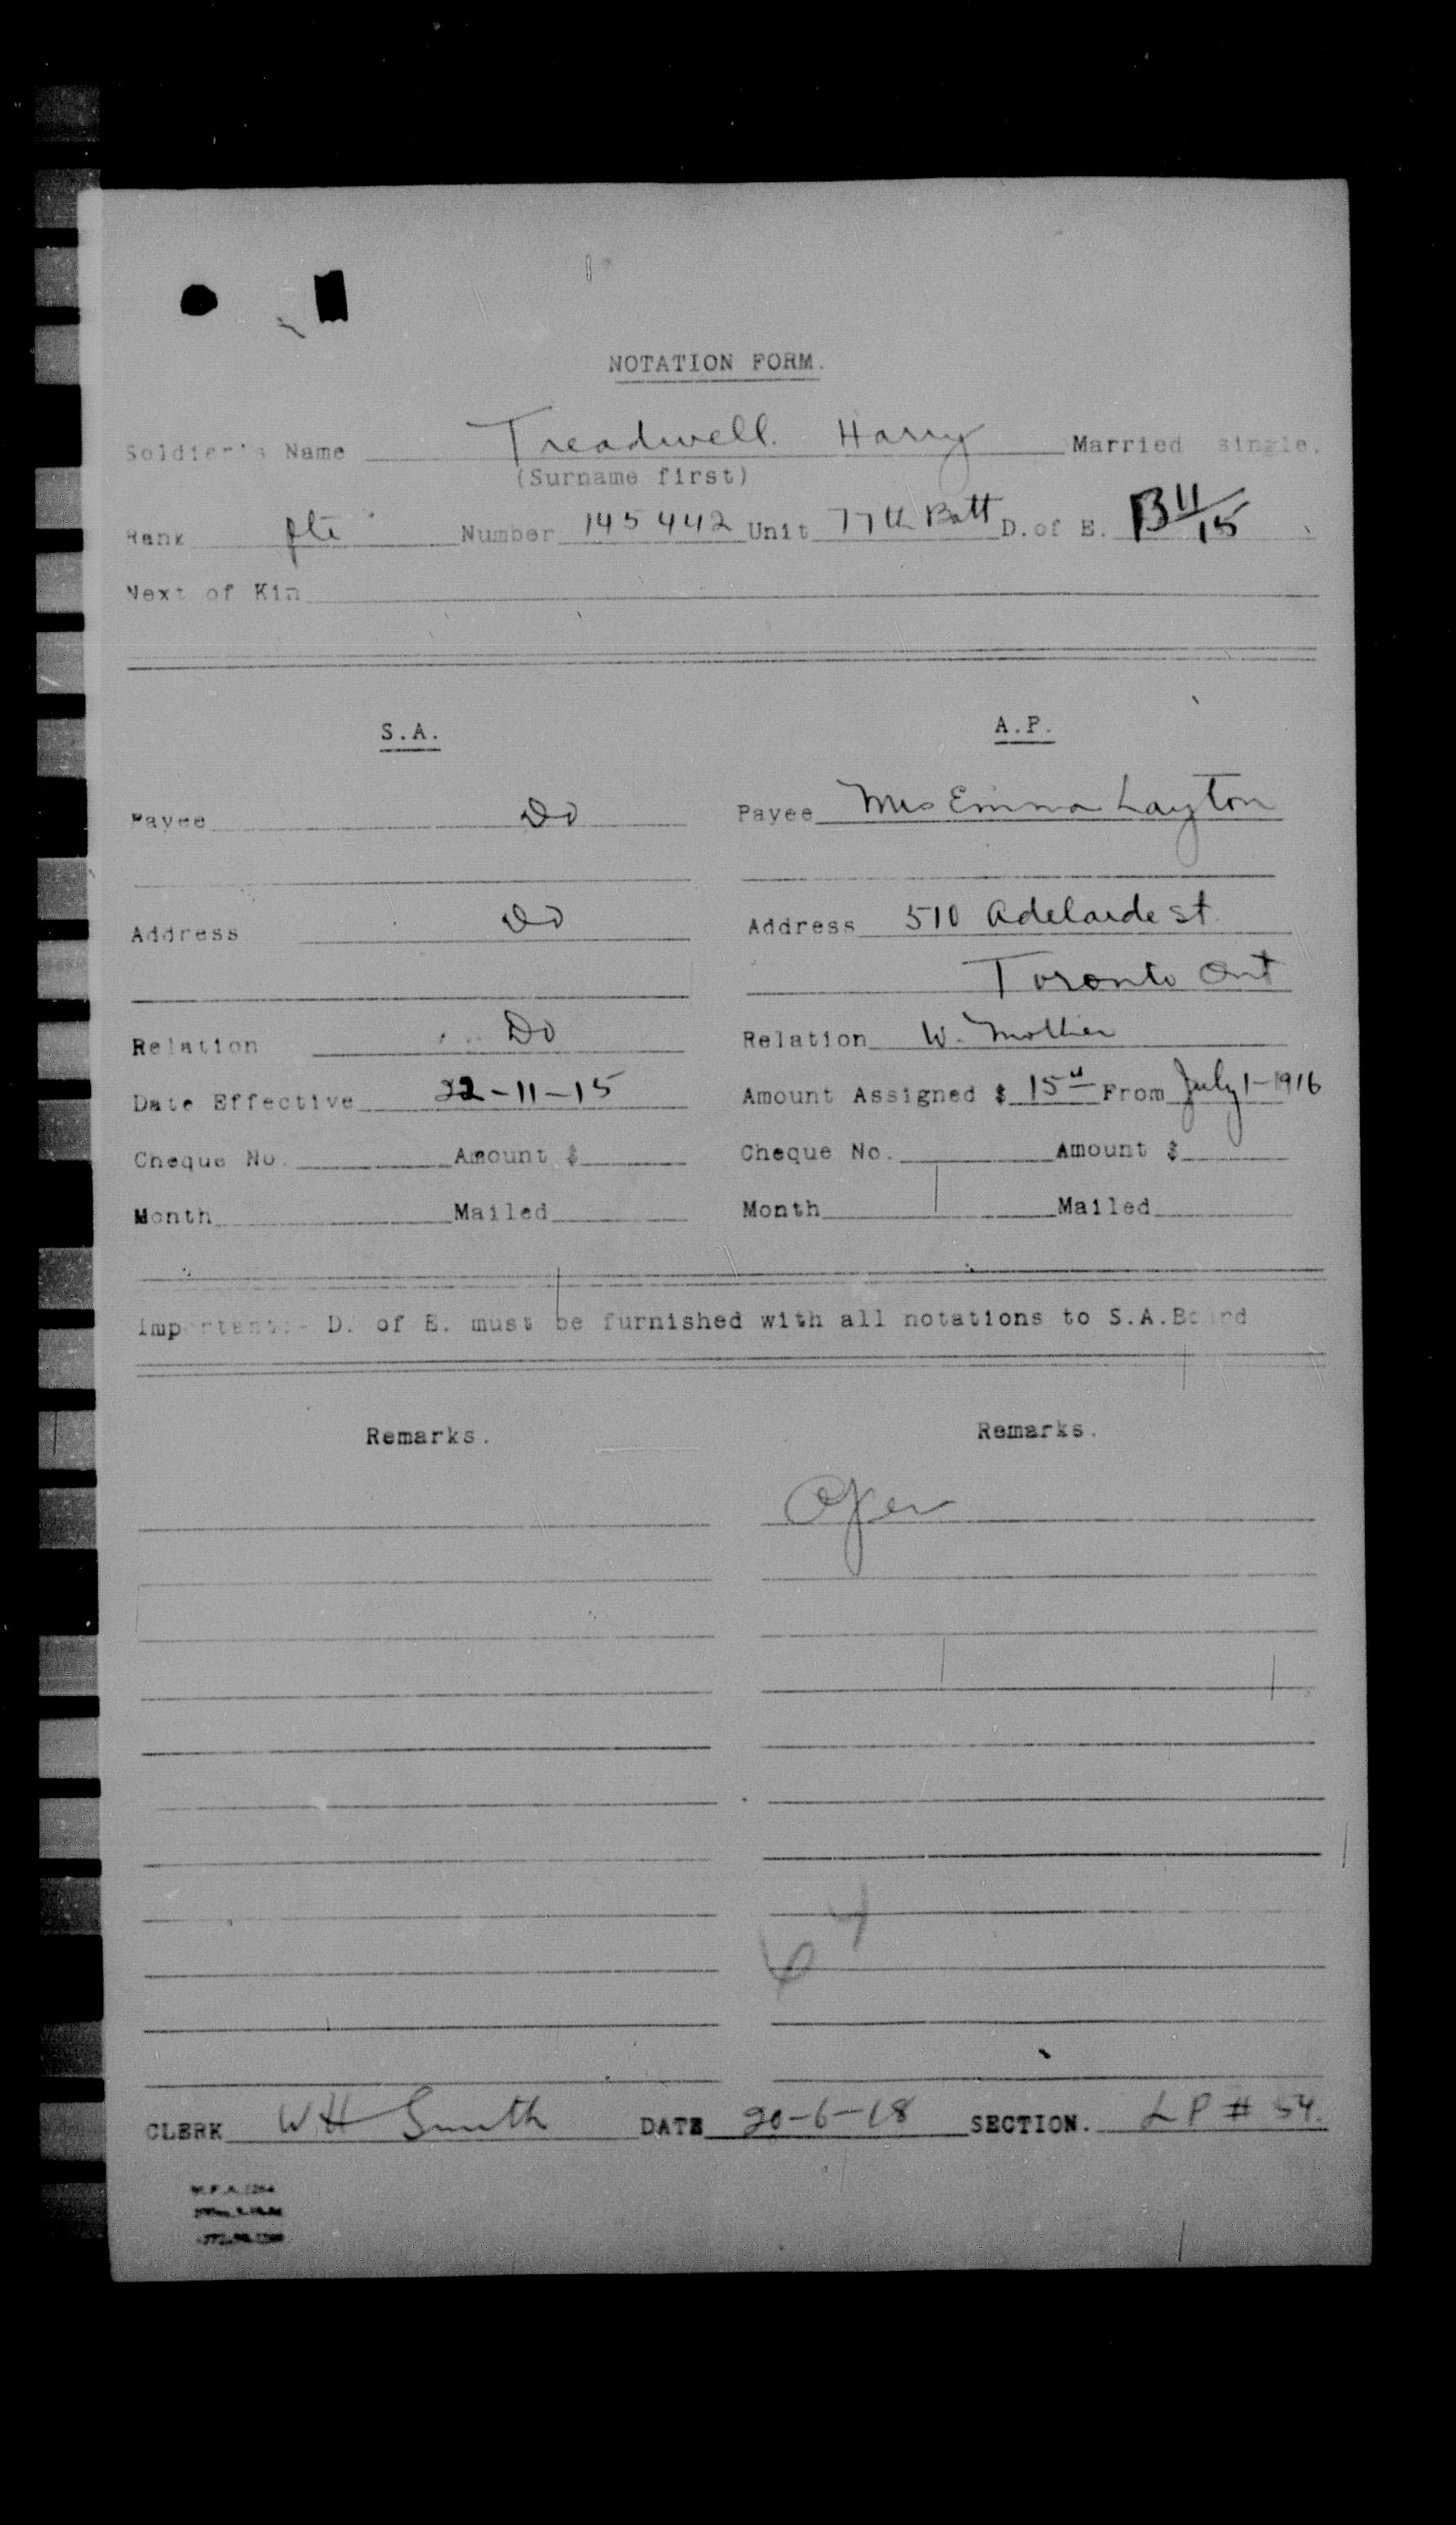 NOTATION FORM.
Soldier's Name Treadwell. Harry Married single.
(Surname first)
Rank Pte Number 145442 Unit 77th Batt D.of E. B 11/15
Next of Kin
S.A. A.P.
Payee Do Payee Mrs Emma Layton
Address Do Address 510 Adelaide st
Toronto Ont
Relation Do Relation W. Mother
Date Effective 22-11-15 Amount Assigned $ 15 From July 1-1916
Cheque No. Amount $ Cheque No. Amount $
Month Mailed Month Mailed
Important:- D. of E. must be furnished with all notations to S.A.Board
Remarks. Remarks.
CLERK WH Smith DATE 20-6-18 SECTION. LP # 54.